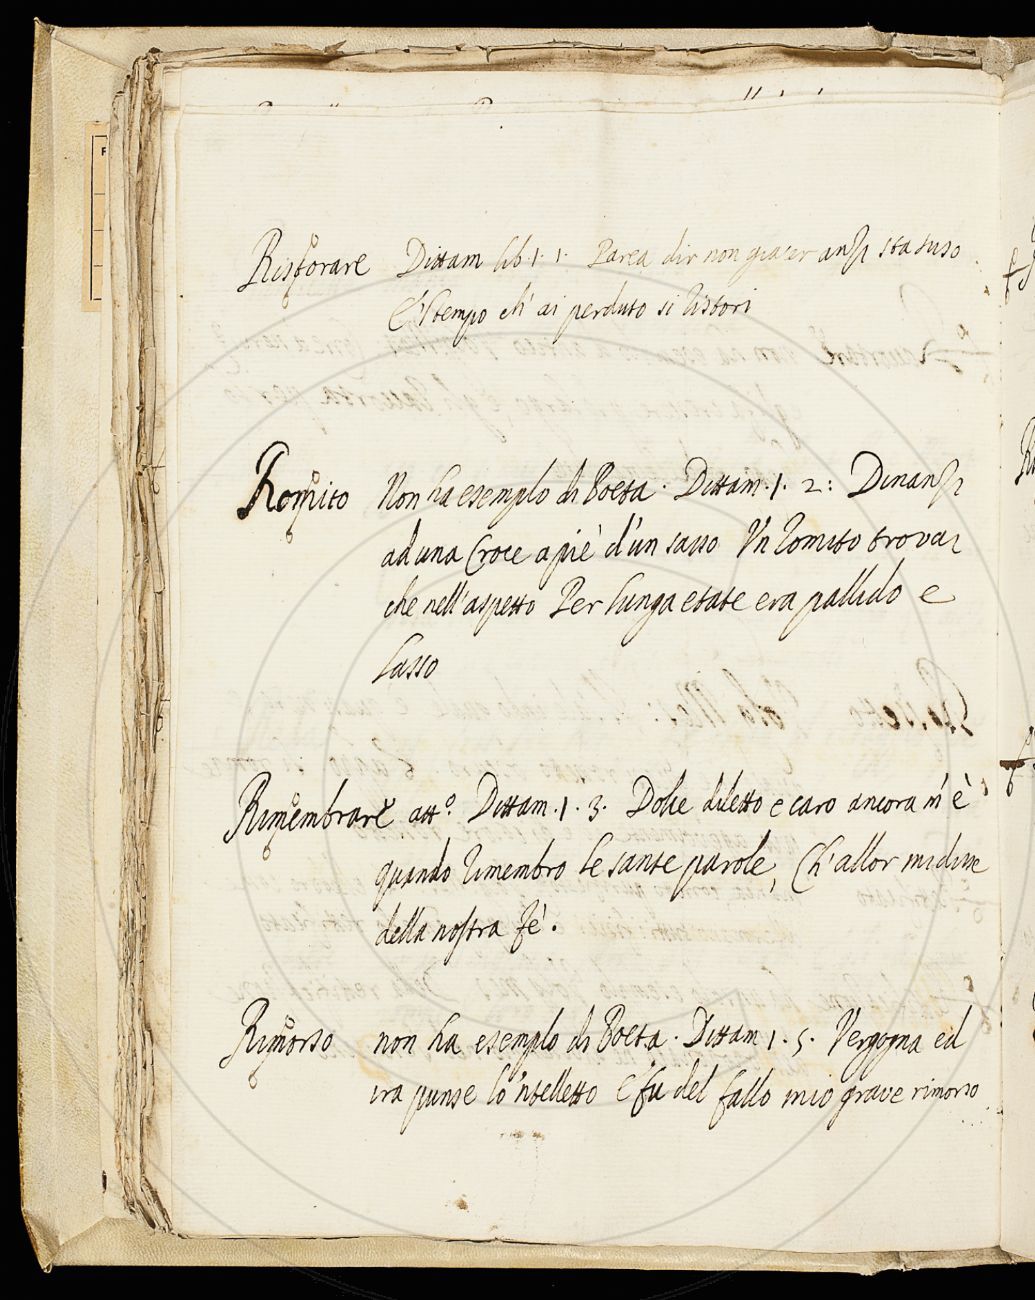 Ristorare Dittam lib. 1. 1. Parea dir non giacer anzi sta suso
E'l tempo ch' ai perduto si ristori
Romito Non ha esemplo di Poeta. Dittam. 1. 2: Dinanzi
ad una Croce a piè d'un sasso Un romito trovai
che nell'aspetto Per lunga etate era pallido e
lasso
Rimembrare att.º Dittam. 1. 3. Dolce diletto e caro ancora m'è
quando rimembro le sante parole, Ch'allor mi disse
della nostra fè.
Rimorso non ha esemplo di Poeta. Dittam 1. 5. Vergogna ed
ira punse lo 'ntelletto E fu del fallo mio grave rimorso